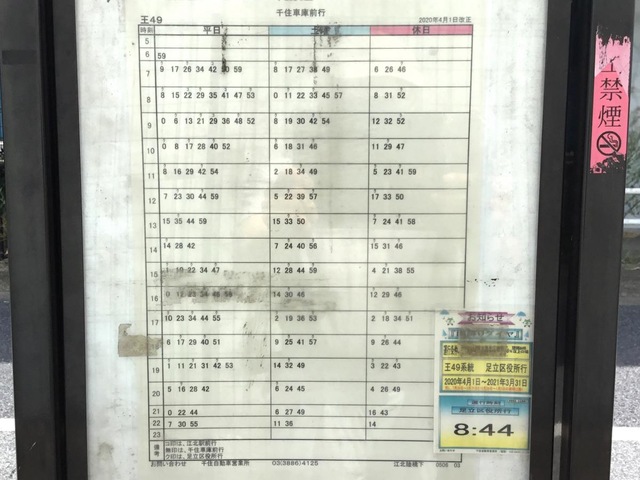 千住車庫前行
王49
2020年4月1日改正
時刻 平日 土曜 休日
5
6 59
7 9 17 26 34 42 50 59 8 17 27 38 49 6 26 46
8 8 15 22 29 35 41 47 53 0 11 22 33 45 57 8 31 52
9 0 6 13 21 29 36 48 52 8 19 30 42 54 12 32 52
10 0 8 17 28 40 52 6 18 31 46 11 29 47
11 8 16 29 42 54 2 18 34 49 5 23 41 59
12 7 23 30 44 59 5 22 39 57 17 33 50
13 15 35 44 59 15 33 50 7 24 41 58
14 14 28 42 7 24 40 56 15 31 46
15 1 10 22 34 47 12 28 44 59 4 21 38 55
16 0 34 14 30 46 12 29 46
17 10 23 34 44 55 2 19 36 53 2 18 34 51
18 6 17 29 40 51 9 25 41 57 9 26 44
19 1 11 21 31 42 53 14 32 49 3 22 43
20 5 16 28 42 6 24 45 4 26 49
21 0 22 44 6 27 49 16 43
22 7 30 55 11 36 14
23
備考
コ印は、江北駅前行
無印は、千住車庫前行
ク印は、足立区役所行
お問い合わせ 千住自動車営業所 03(3886)4125 江北陸橋下 0506 03
禁煙
お知らせ
王49系統 足立区役所行
2020年4月1日～2021年3月31日
足立区役所行
8:44